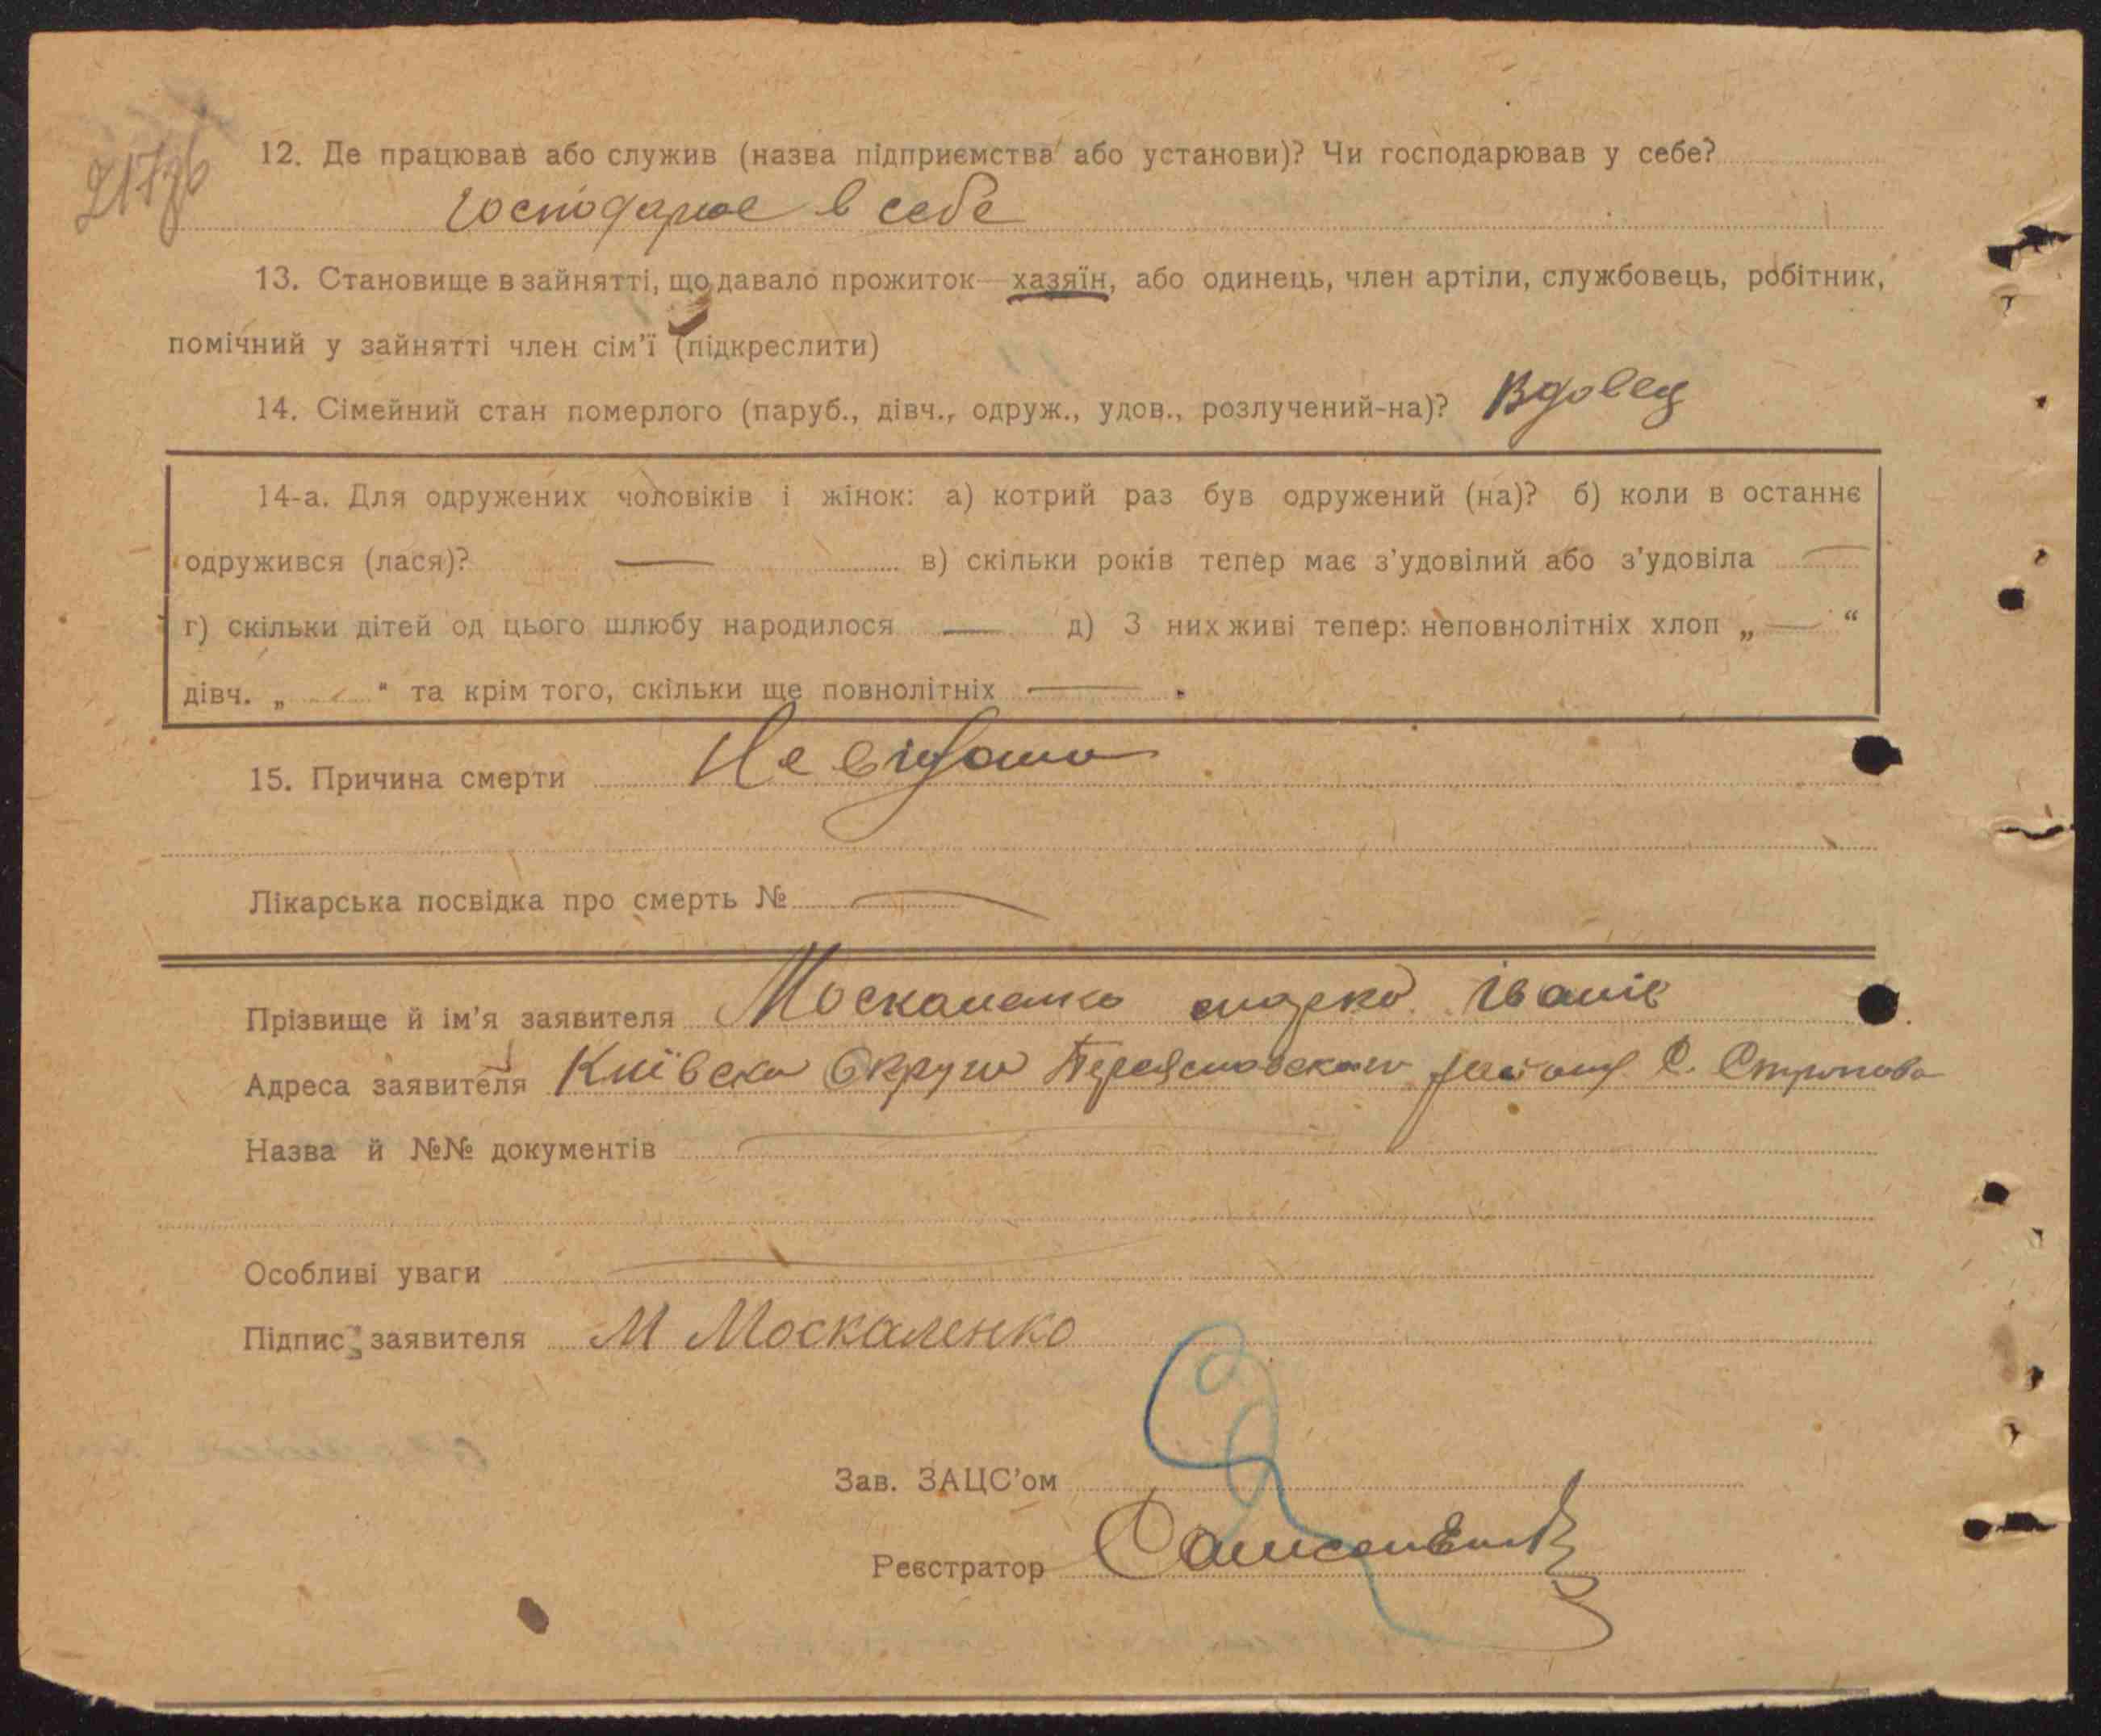 12. Де працював або служив (назва підприємства або установи)? Чи господарював у себе?
господарює в себе
13. Становище в зайнятті, що давало прожиток—хазяїн, або одинець, член артіли, службовець, робітник,
помічний у зайнятті член сім'ї (підкреслити)
14. Сімейний стан померлого (паруб., дівч., одруж., удов., розлучений-на)? Вдовец
14-а. Для одружених чоловіків і жінок: а) котрий раз був одружений (на)? б) коли в останнє
одружився (лася)? — в) скільки років тепер має з'удовілий або з'удовіла —
г) скільки дітей од цього шлюбу народилося — д) З них живі тепер: неповнолітніх хлоп „ — “
дівч. „ — “ та крім того, скільки ще повнолітніх — .
15. Причина смерти Не відомо
Лікарська посвідка про смерть № —
Прізвище й ім'я заявителя Москаленко марко Іванів
Адреса заявителя Київска Округа Переяславского району С. Строкова
Назва й №№ документів —
Особливі уваги —
Підпис заявителя М Москаленко
Зав. ЗАЦС'ом
Реєстратор